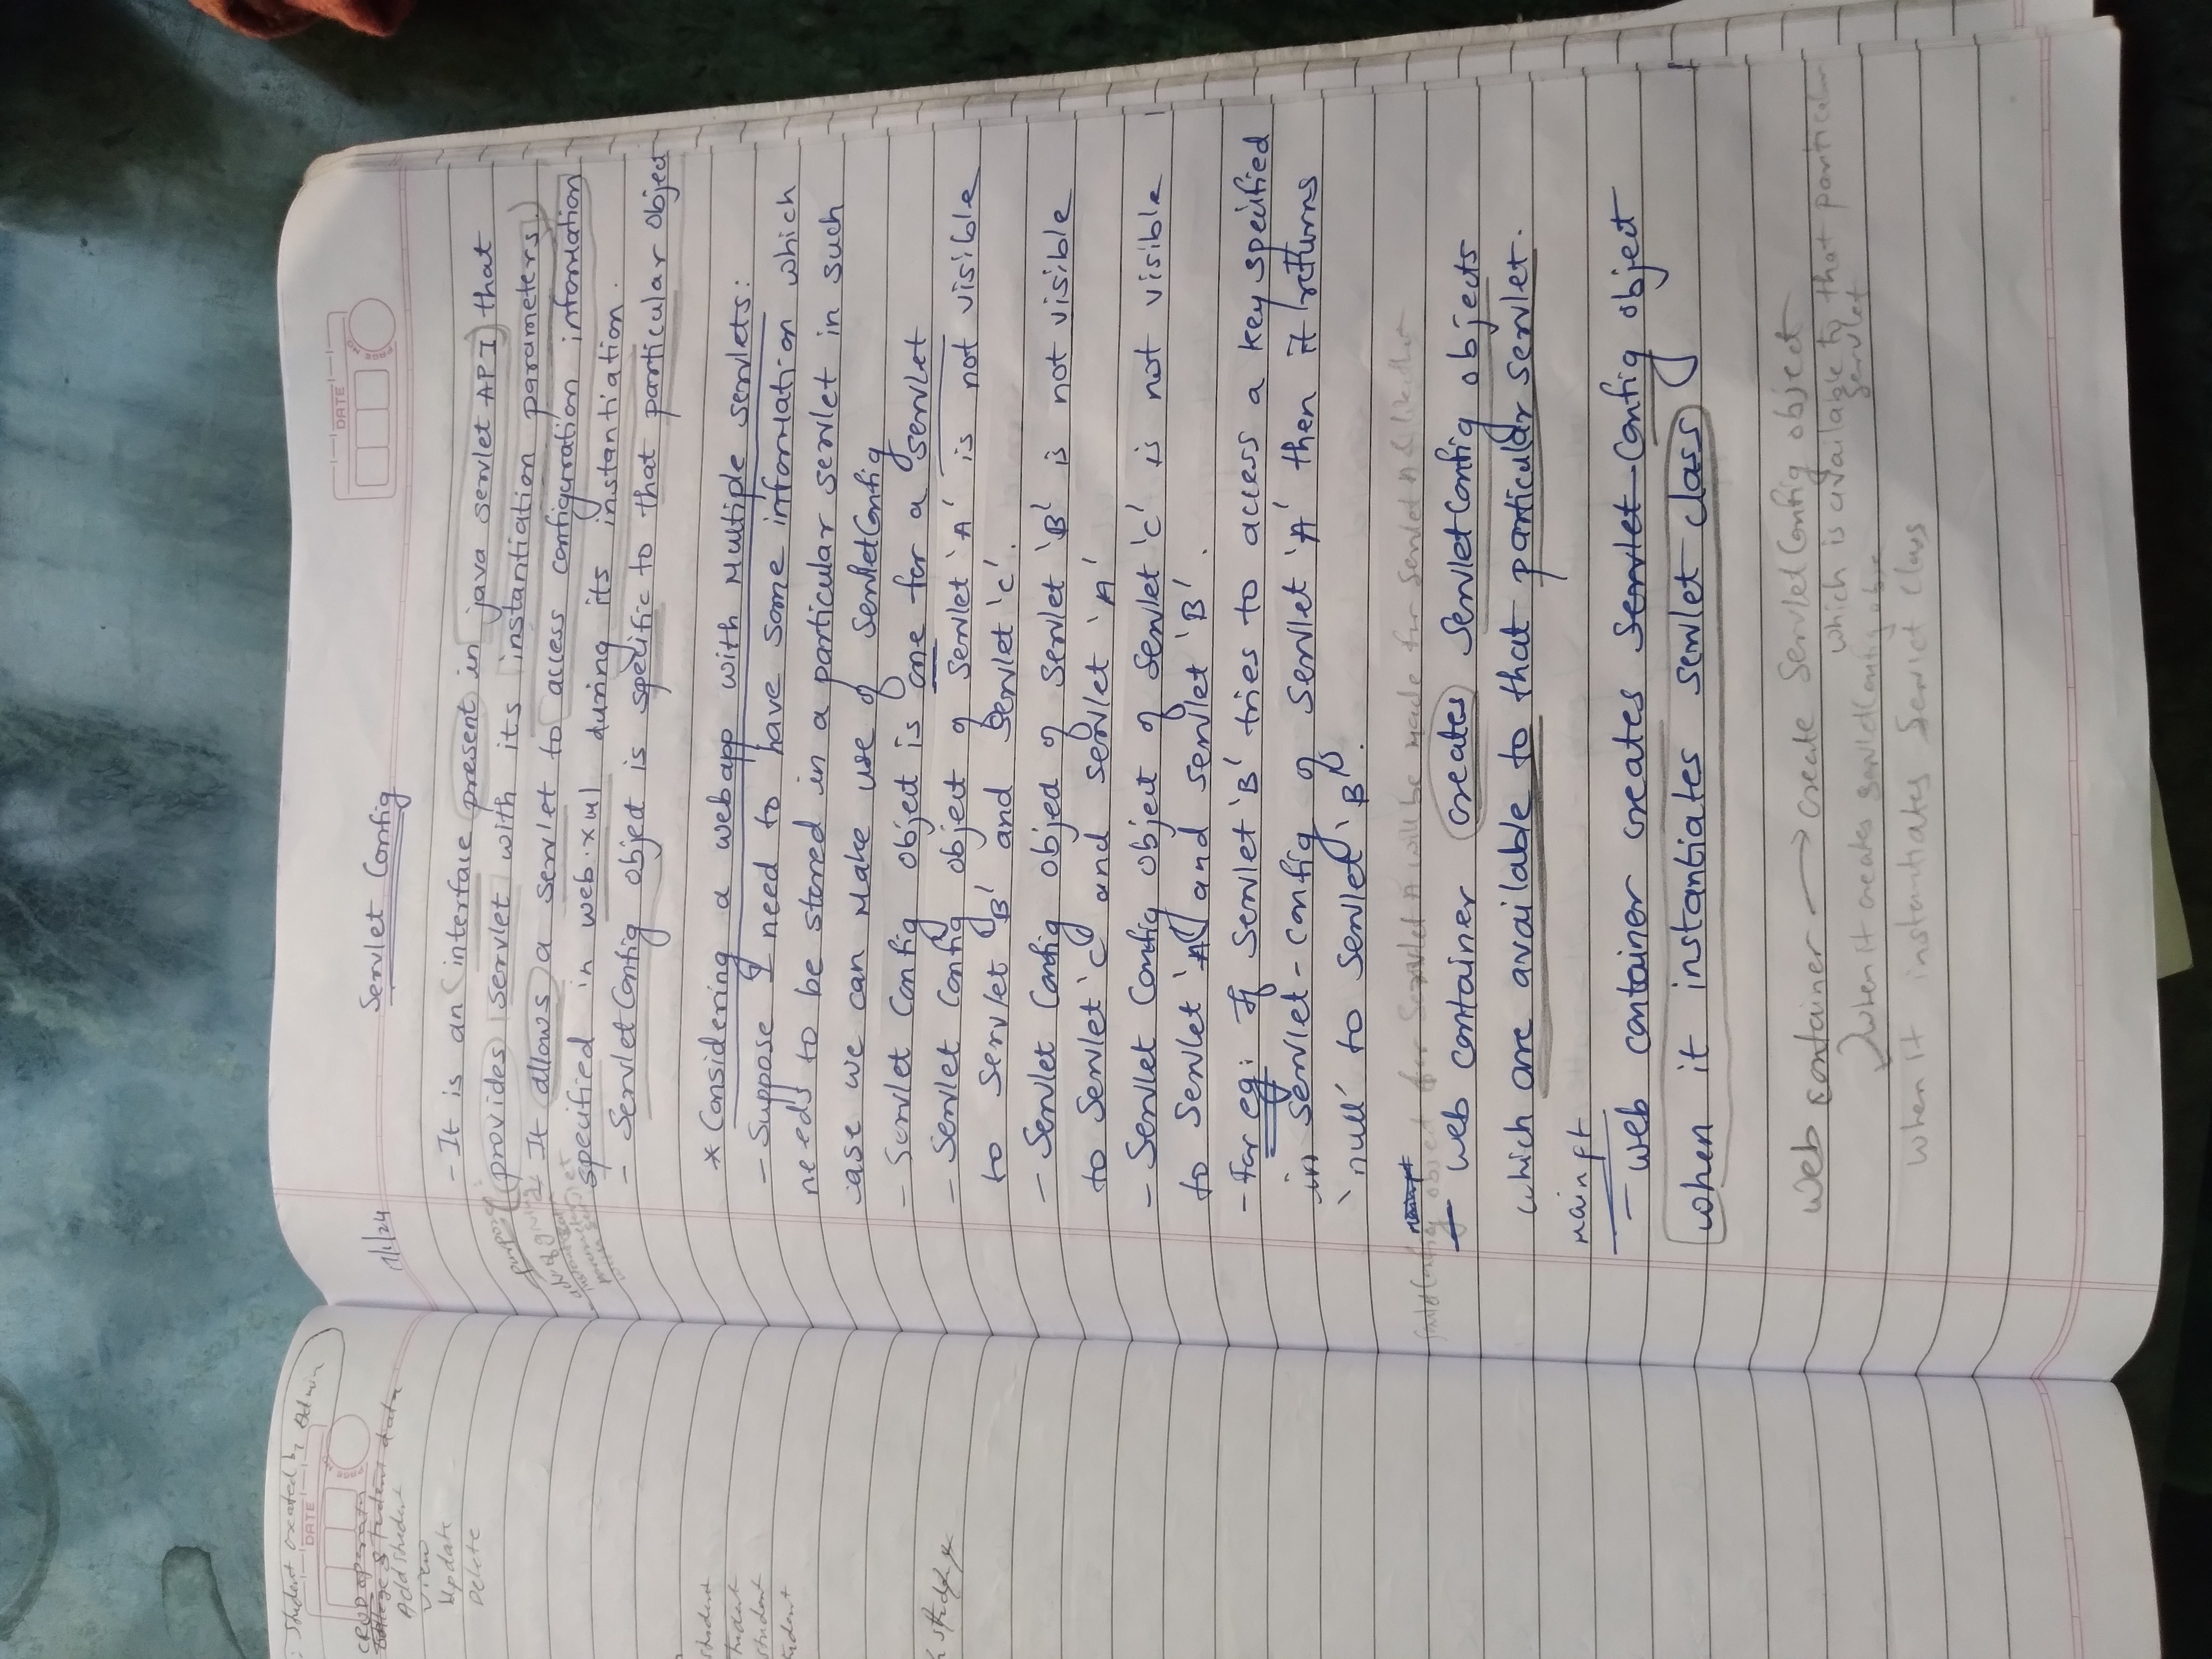 : Student created by Admin
DATE
CRUD operatn
College Student data
Add student
View
Update
Delete
student
student
student
DATE
PAGE NO
1/1/24
Servlet Config
- It is an interface present in java servlet API that
purpose
provides servlet with its instantiation parameters.
- It allows a servlet to access configuration information
specified in web.xml during its instantiation.
- Servlet Config object is specific to that particular Object
* Considering a web app with Multiple servlets:
- Suppose I need to have some information which
needs to be stored in a particular servlet in such
case we can Make use of ServletConfig
- Servlet Config object is one for a servlet
- Servlet Config object of Servlet 'A' is not visible
to Servlet 'B' and Servlet 'C'.
- Servlet Config object of Servlet 'B' is not visible
to Servlet 'C' and servlet 'A'
- Servlet Config object of Servlet 'C' is not visible
to Servlet 'A' and servlet 'B'.
- For eg: If Servlet 'B' tries to access a key specified
in servlet-config of Servlet 'A' then it returns
'null' to Servlet 'B'.
ServletConfig object for Servlet A will be made for Servlet A & like that
- Web container creates ServletConfig objects
which are available to that particular servlet.
Main pt
- Web container creates Servlet Config object
when it instantiates servlet class
Web container → create ServletConfig object
which is available to that particular
servlet
when it creates servletConfig obje
when it instantiates Servlet Class